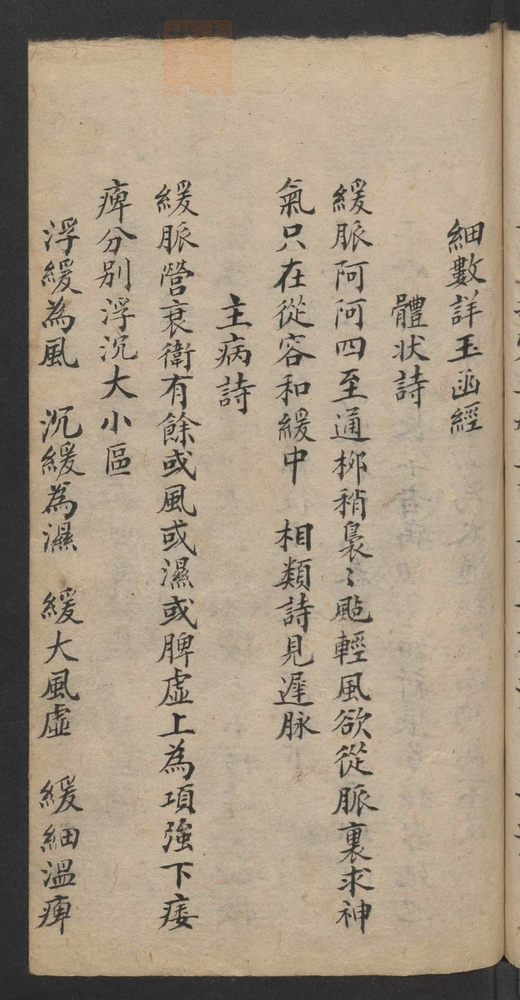 細數詳玉函經
體状詩
緩脈阿阿四至通柳稍裊〻颭輕風欲從脈裏求神
氣只在從容和緩中 相類詩見遲脉
主病詩
緩脈營衰衛有餘或風或濕或脾虛上為項強下痿
痺分別浮沉大小區
浮緩為風 沉緩為濕 緩大風虛 緩細溫痺